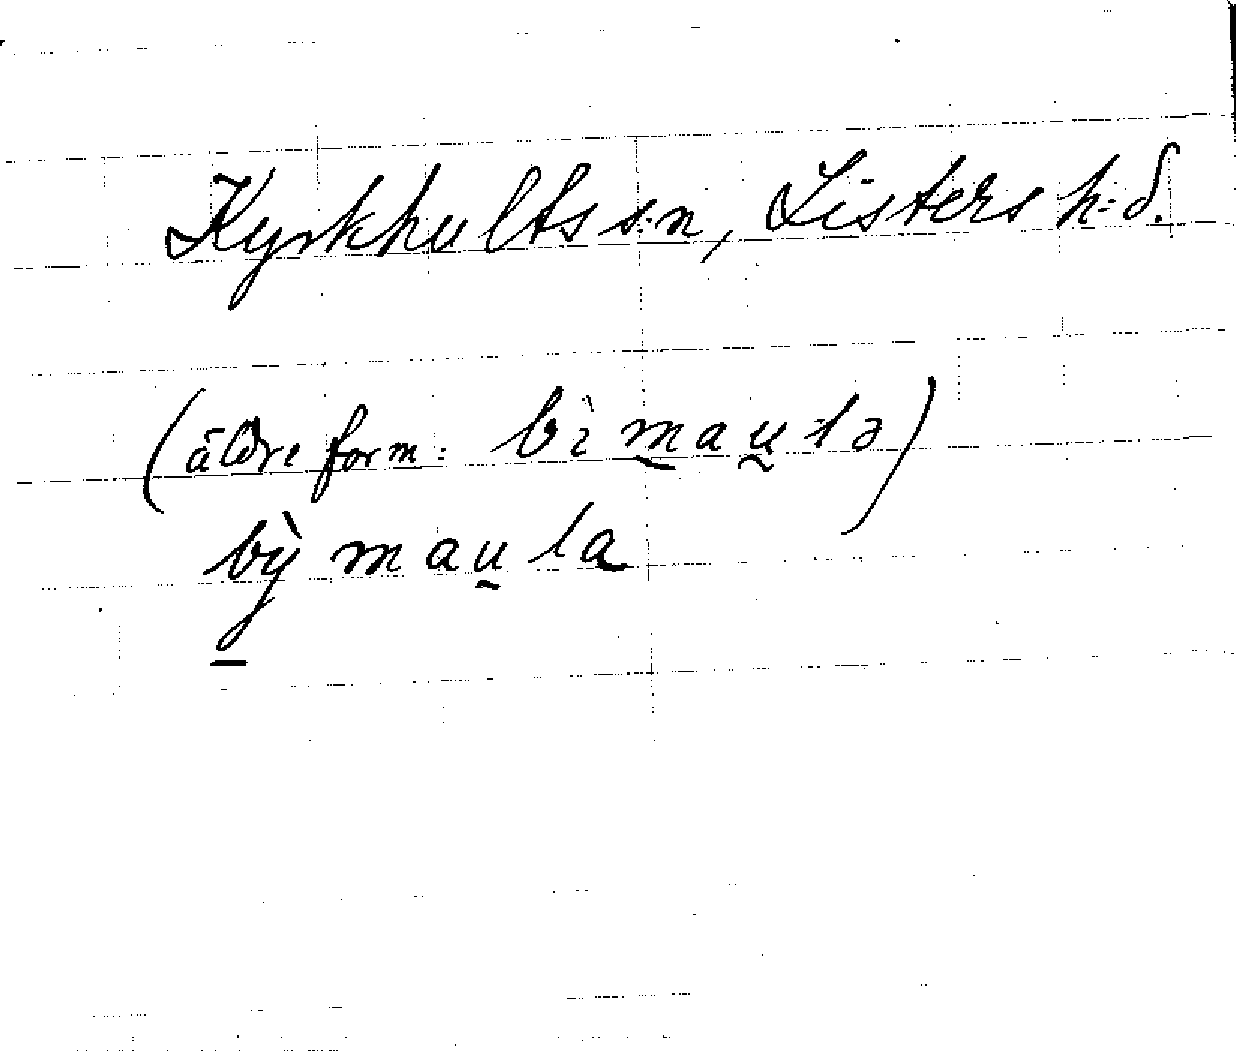 Kyrkhults s:n, Listers h:d.
(äldre form: bì mau̲lə)
bỳ̲ mau̲la